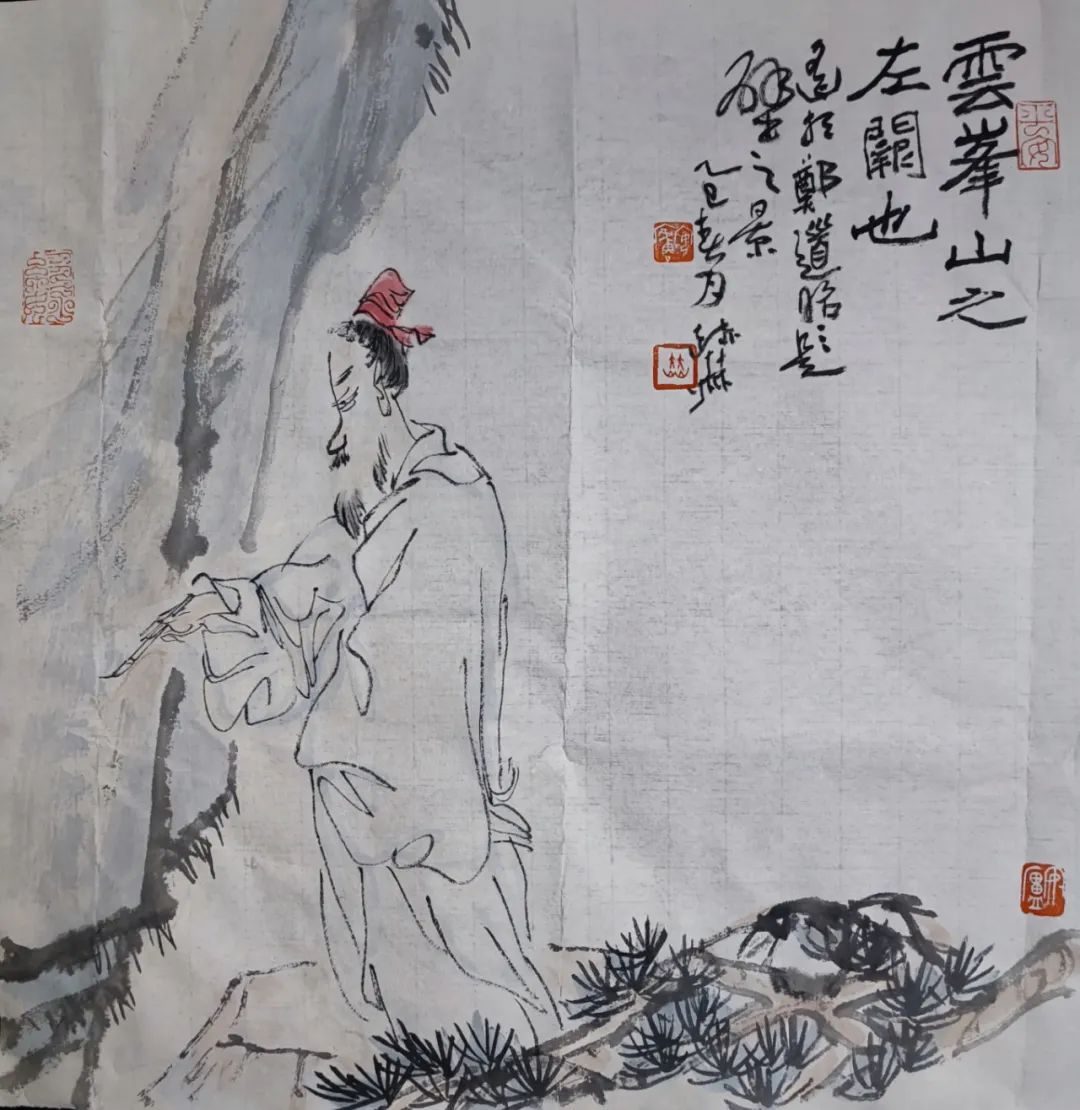 雲峯山之
左闕也
遙想鄭道昭題
壁之景
乙巳春月
平安